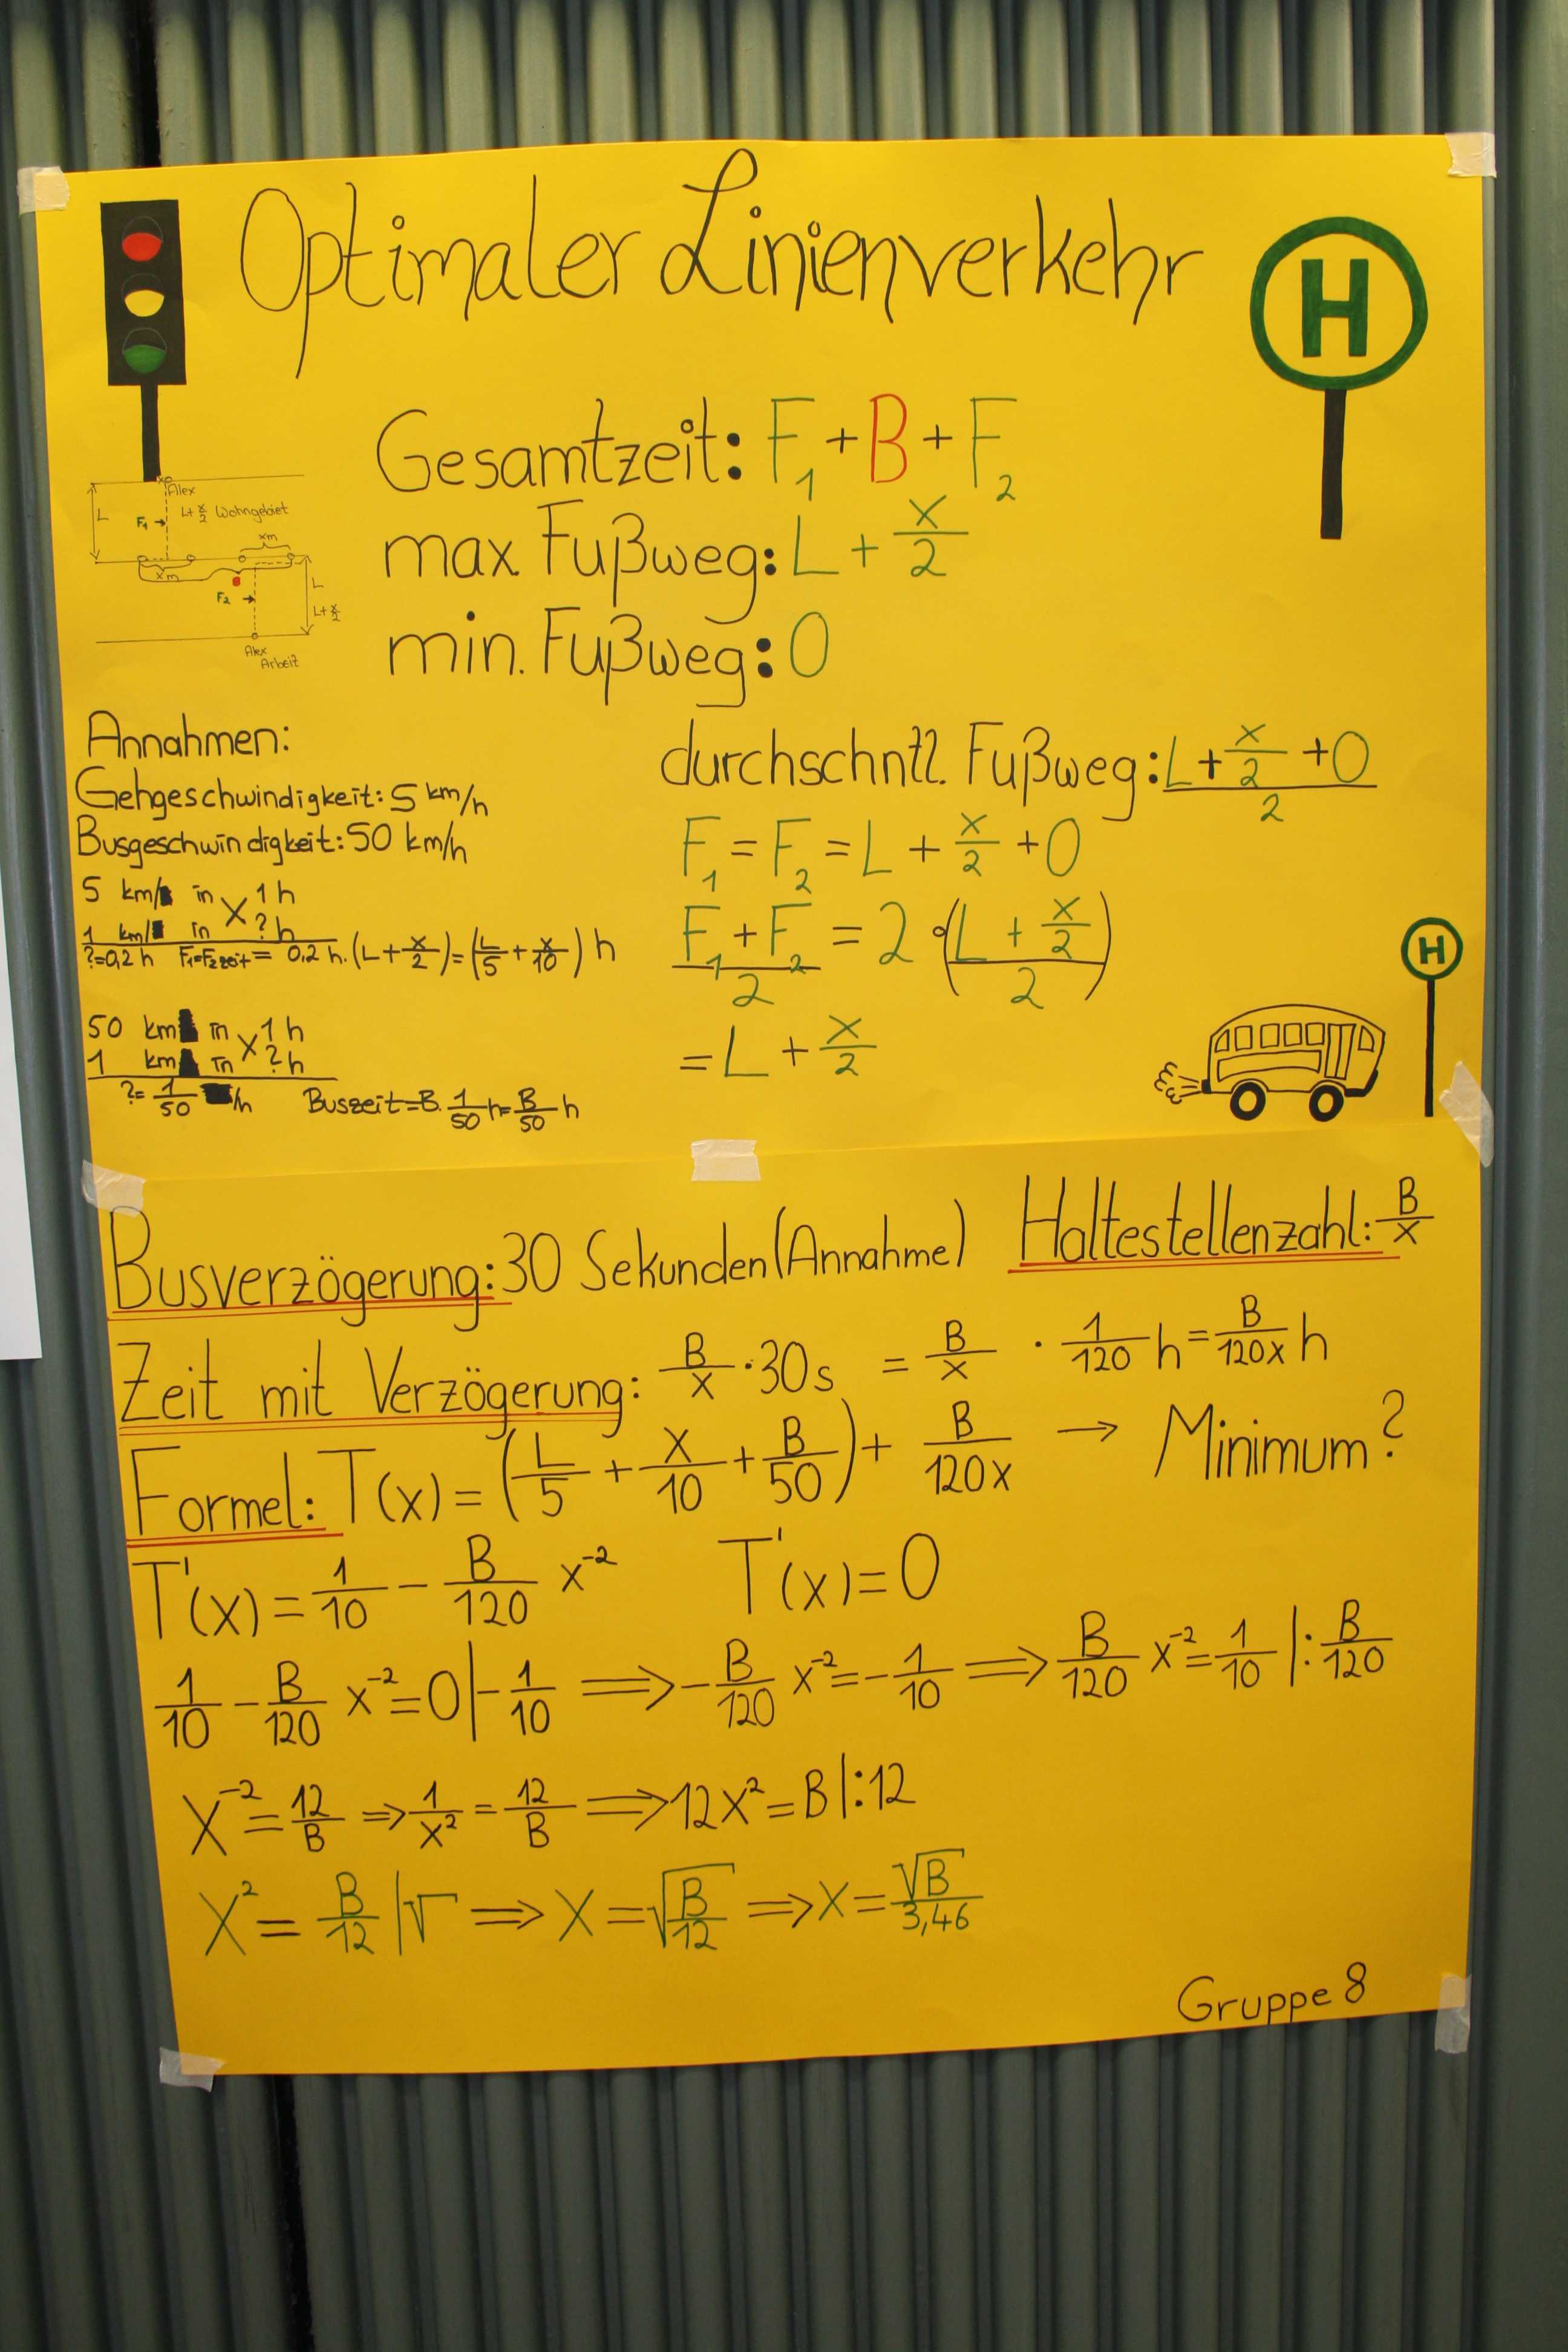 Optimaler Linienverkehr
H
Gesamtzeit: F₁ + B + F₂
max. Fußweg: L + x/2
min. Fußweg: 0
Alex
L
F₁ →
L + x/2 Wohngebiet
xm
xm
F₂ →
L
L + x/2
Alex
Arbeit
Annahmen:
Gehgeschwindigkeit: 5 km/h
Busgeschwindigkeit: 50 km/h
5 km in 1 h
1 km in ? h
?=0,2 h F₁=F₂ zeit = 0,2 h · (L + x/2) = (L/5 + x/10) h
50 km in 1 h
1 km in ? h
?= 1/50 /h Buszeit = B · 1/50 h = B/50 h
durchschntl. Fußweg: (L + x/2 + 0)/2
F₁ = F₂ = L + x/2 + 0
(F₁ + F₂)/2 = 2 · ((L + x/2)/2)
= L + x/2
H
Busverzögerung: 30 Sekunden (Annahme) Haltestellenzahl: B/x
Zeit mit Verzögerung: B/x · 30 s = B/x · 1/120 h = B/120x h
Formel: T(x) = (L/5 + x/10 + B/50) + B/120x → Minimum?
T'(x) = 1/10 − B/120 x⁻² T'(x) = 0
1/10 − B/120 x⁻² = 0 | − 1/10 ⟹ − B/120 x⁻² = − 1/10 ⟹ B/120 x⁻² = 1/10 | : B/120
x⁻² = 12/B ⟹ 1/x² = 12/B ⟹ 12x² = B | : 12
x² = B/12 | √ ⟹ x = √(B/12) ⟹ x = √B/3,46
Gruppe 8